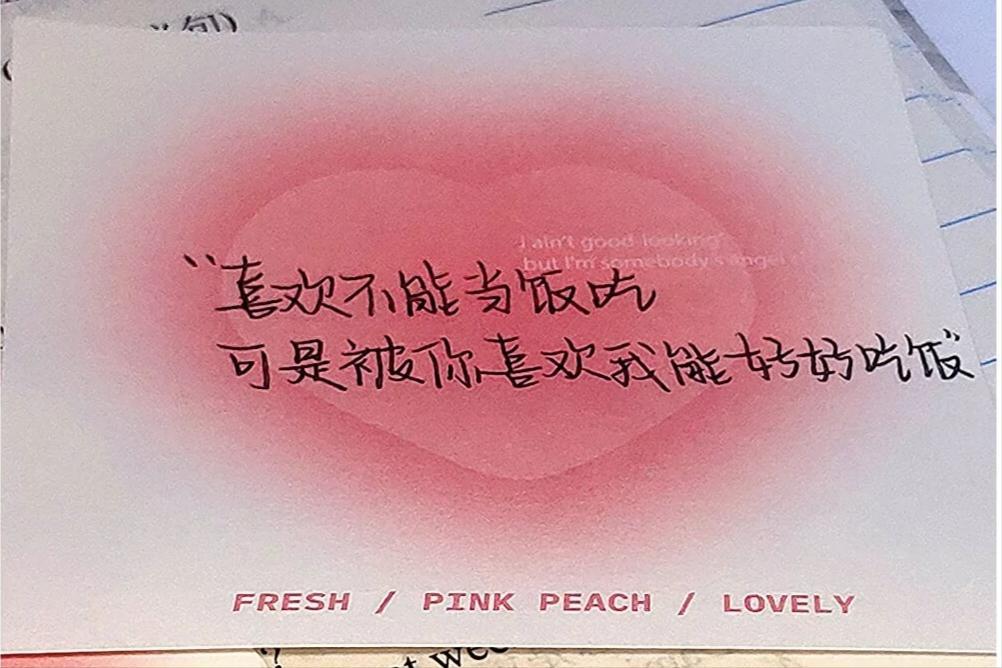 旬)
I ain't good looking
but I'm somebody's angel
“喜欢不能当饭吃
可是被你喜欢我能好好吃饭”
FRESH / PINK PEACH / LOVELY